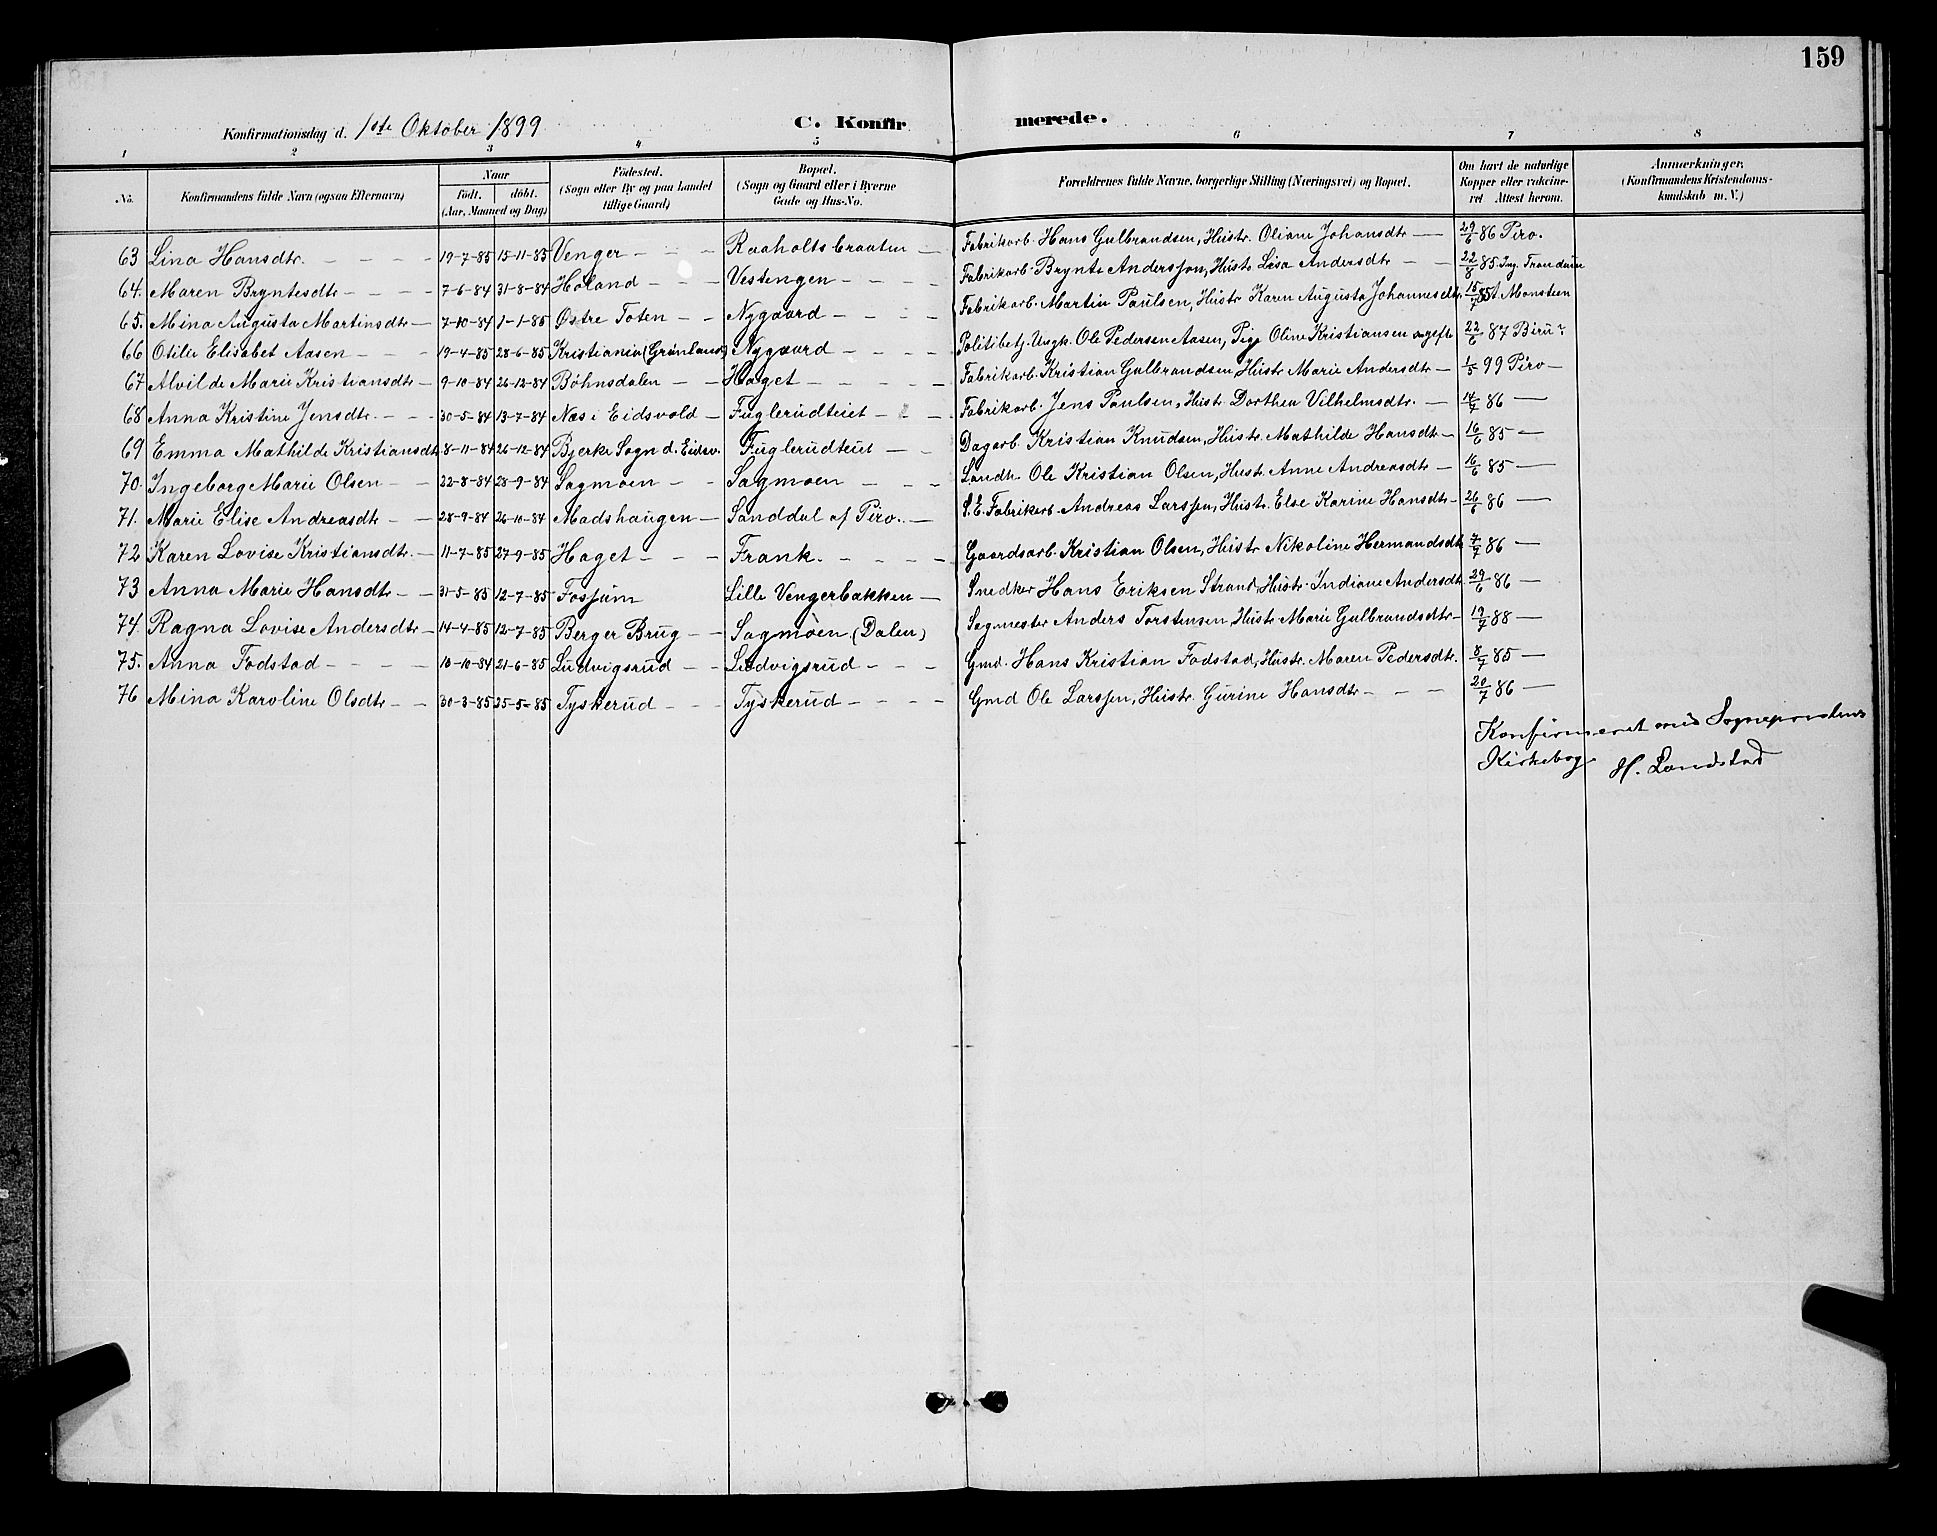 159
Konfirmationsdag d. 1ste Oktober 1899 C. Konfir merede.
1 2 3 4 5 6 7 8
No. Konfirmandens fulde Navn (ogsaa Efternavn) Naar født. døbt. (Aar, Maaned og Dag) Fødested. (Sogn eller By og paa Landet tillige Gaard) Bopæl. (Sogn og Gaard eller i Byerne Gade og Hus-No. Forældrenes fulde Navne, borgerlige Stilling (Næringsvei) og Bopæl. Om havt de naturlige Kopper eller vakcineret. Attest herom. Anmærkninger. (Konfirmandens Kristendomskundskab m. V.)
63 Lina Hansdtr. 19-7-85 15-11-85 Venger Raaholtsbraaten Fabrikarb. Hans Gulbrandsen, Hustr. Oliane Johansdtr 29/6 86 Piro.
64. Maren Bryntesdtr 7-6-84 31-8-84 Høland Vestengen Fabrikarb. Brynte Anderssen, Hustr Lisa Andersdtr 22/8 85. Ing. Trandum
65. Mina Augusta Martinsdtr 7-10-84 1-1-85 Østre Toten Nygaard Fabrikarb. Martin Paulsen, Hustr Karen Augusta Johannesdtr. 15/7 85 A Monsteen
66 Otilie Elisabet Aasen 19-4-85 28-6-85 Kristiania (Grønland) Nygaard Politibetj. Ungk. Ole Pedersen Aasen, Pige Oline Kristiansen ugift 22/6 87 Biru?
67 Alvilde Marie Kristiansdtr 9-10-84 26-12-84 Bøhnsdalen Haget Fabrikarb. Kristian Gulbrandsen Hustr Marie Andersdtr 1/5 99 Piro —
68 Anna Kristine Jensdtr. 30-5-84 13-7-84 Næs i Eidsvold Fuglerudteiet Fabrikarb. Jens Paulsen, Hustr Dorthea Vilhelmsdtr. 14/7 86 —
69 Emma Mathilde Kristiansdtr 8-11-84 26-12-84 Bjerke Sogn d. Eidsv. Fuglerudteiet Dagarb. Kristian Knudsen, Hustr. Mathilde Hansdtr 16/6 85 —
70. Ingeborg Marie Olsen 22-8-84 28-9-84 Sagmoen Sagmoen Landh. Ole Kristian Olsen, Hustr. Anne Andreasdtr 16/6 85 —
71. Marie Elise Andreasdtr 28-9-84 26-10-84 Madshaugen Sanddal af Piro. S. E. Fabrikarb. Andreas Larssen, Hustr. Else Karine Hansdtr 26/6 86 —
72 Karen Lovise Kristiansdtr. 11-7-85 27-9-85 Haget Frank. Gaardsarb. Kristian Olsen, Hustr Nikoline Hermansdtr 7/7 86 —
73 Anna Marie Hansdtr 31-5-85 12-7-85 Fossum Lille Vengerbakken Snedker Hans Eriksen Strand, Hustr. Indiane Andersdtr. 29/6 86 —
74. Ragna Lovise Andersdtr 14-4-85 12-7-85 Berger Brug Sagmoen (Dalen) Sagmester Anders Torstensen, Hustr Marie Gulbrandsdtr 19/7 88 —
75. Anna Fodstad 10-10-84 21-6-85 Ludvigsrud Ludvigsrud Gmd. Hans Kristian Fodstad, Hustr. Maren Pedersdtr. 8/7 85 —
76 Mina Karoline Olsdtr 30-3-85 25-5-85 Tyskerud Tyskerud Gmd Ole Larssen, Hustr. Gurine Hansdtr 20/7 86 —
Konfirmeret med Sogneprestens
Kirkebog H. Landstad